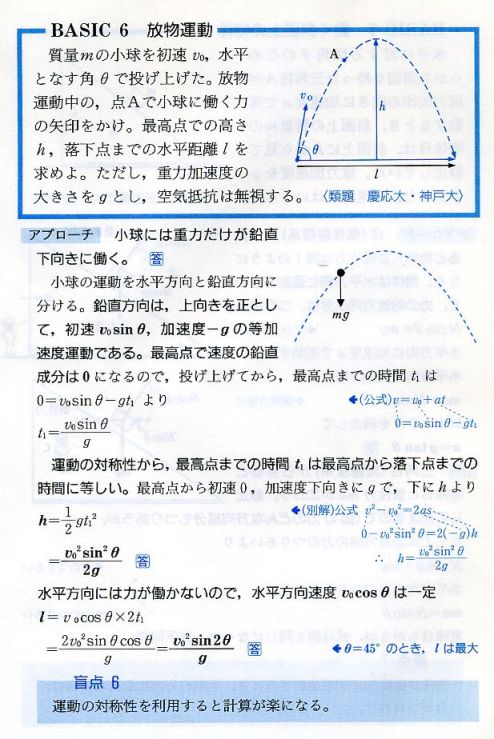 BASIC 6 放物運動
質量mの小球を初速 v₀, 水平
となす角 θ で投げ上げた。放物
運動中の, 点Aで小球に働く力
の矢印をかけ。最高点での高さ
h, 落下点までの水平距離 l を
求めよ。ただし, 重力加速度の
大きさを g とし, 空気抵抗は無視する。〈類題 慶応大・神戸大〉
A
v₀
h
θ
l
アプローチ 小球には重力だけが鉛直
下向きに働く。 答
小球の運動を水平方向と鉛直方向に
分ける。鉛直方向は, 上向きを正とし
て, 初速 v₀sin θ, 加速度−g の等加
速度運動である。最高点で速度の鉛直
mg
成分は 0 になるので, 投げ上げてから, 最高点までの時間 t₁ は
0=v₀sin θ−gt₁ より
←(公式)v=v₀+at
0=v₀sin θ−gt₁
t₁=v₀sin θ/g
運動の対称性から, 最高点までの時間 t₁ は最高点から落下点までの
時間に等しい。最高点から初速 0, 加速度下向きに g で, 下に h より
h=1/2 gt₁²
←(別解)公式 v²−v₀²=2as
0−v₀²sin²θ=2(−g)h
=v₀²sin²θ/2g 答
∴ h=v₀²sin²θ/2g
水平方向には力が働かないので, 水平方向速度 v₀cos θ は一定
l=v₀cos θ×2t₁
=2v₀²sin θ cos θ/g=v₀²sin 2θ/g 答 ←θ=45° のとき, l は最大
盲点 6
運動の対称性を利用すると計算が楽になる。